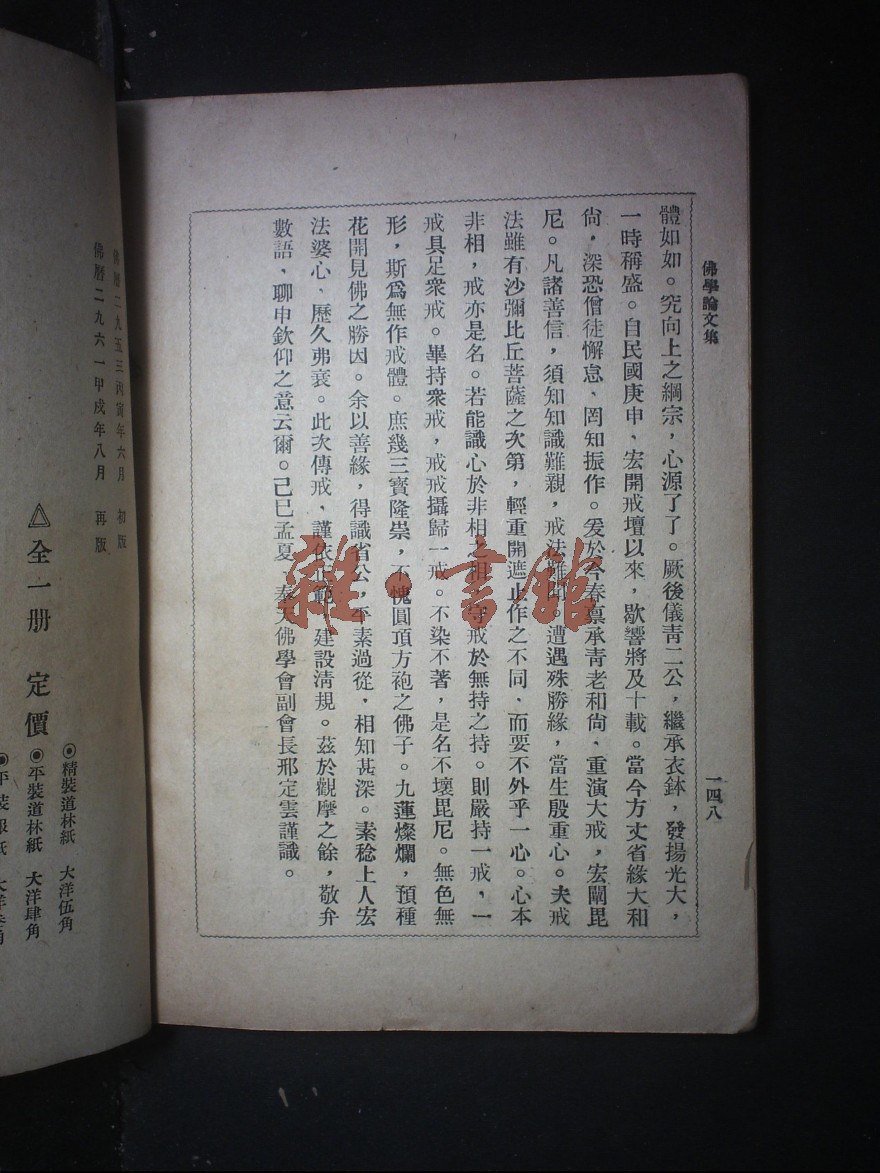 佛學論文集
一四八
體如如。究向上之綱宗，心源了了。厥後儀靑二公，繼承衣鉢，發揚光大，
一時稱盛。自民國庚申、宏開戒壇以來，歇響將及十載。當今方丈省緣大和
尙，深恐僧徒懈怠、罔知振作。爰於今春禀承靑老和尙、重演大戒，宏闡毘
尼。凡諸善信，須知知識難親，戒法難。遭遇殊勝緣，當生殷重心。夫戒
法雖有沙彌比丘菩薩之次第，輕重開遮止作之不同、而要不外乎一心。心本
非相，戒亦是名。若能識心於非相之相，守戒於無持之持。則嚴持一戒，一
戒具足衆戒。畢持衆戒，戒戒攝歸一戒。不染不著，是名不壞毘尼。無色無
形，斯爲無作戒體。庶幾三寶隆崇，不愧圓頂方袍之佛子。九蓮燦爛，預種
花開見佛之勝因。余以善緣，得識省公，平素過從，相知甚深。素稔上人宏
法婆心、歷久弗衰。此次傳戒、謹依範，建設淸規。茲於觀摩之餘，敬弁
數語、聊申欽仰之意云爾。己巳孟夏、奉天佛學會副會長邢定雲謹識。
雜·書館
佛曆二九五三丙寅年六月 初版
佛曆二九六一甲戌年八月 再版
全一册 定價
◉精裝道林紙 大洋伍角
◉平裝道林紙 大洋肆角
◉平裝報紙 大洋角